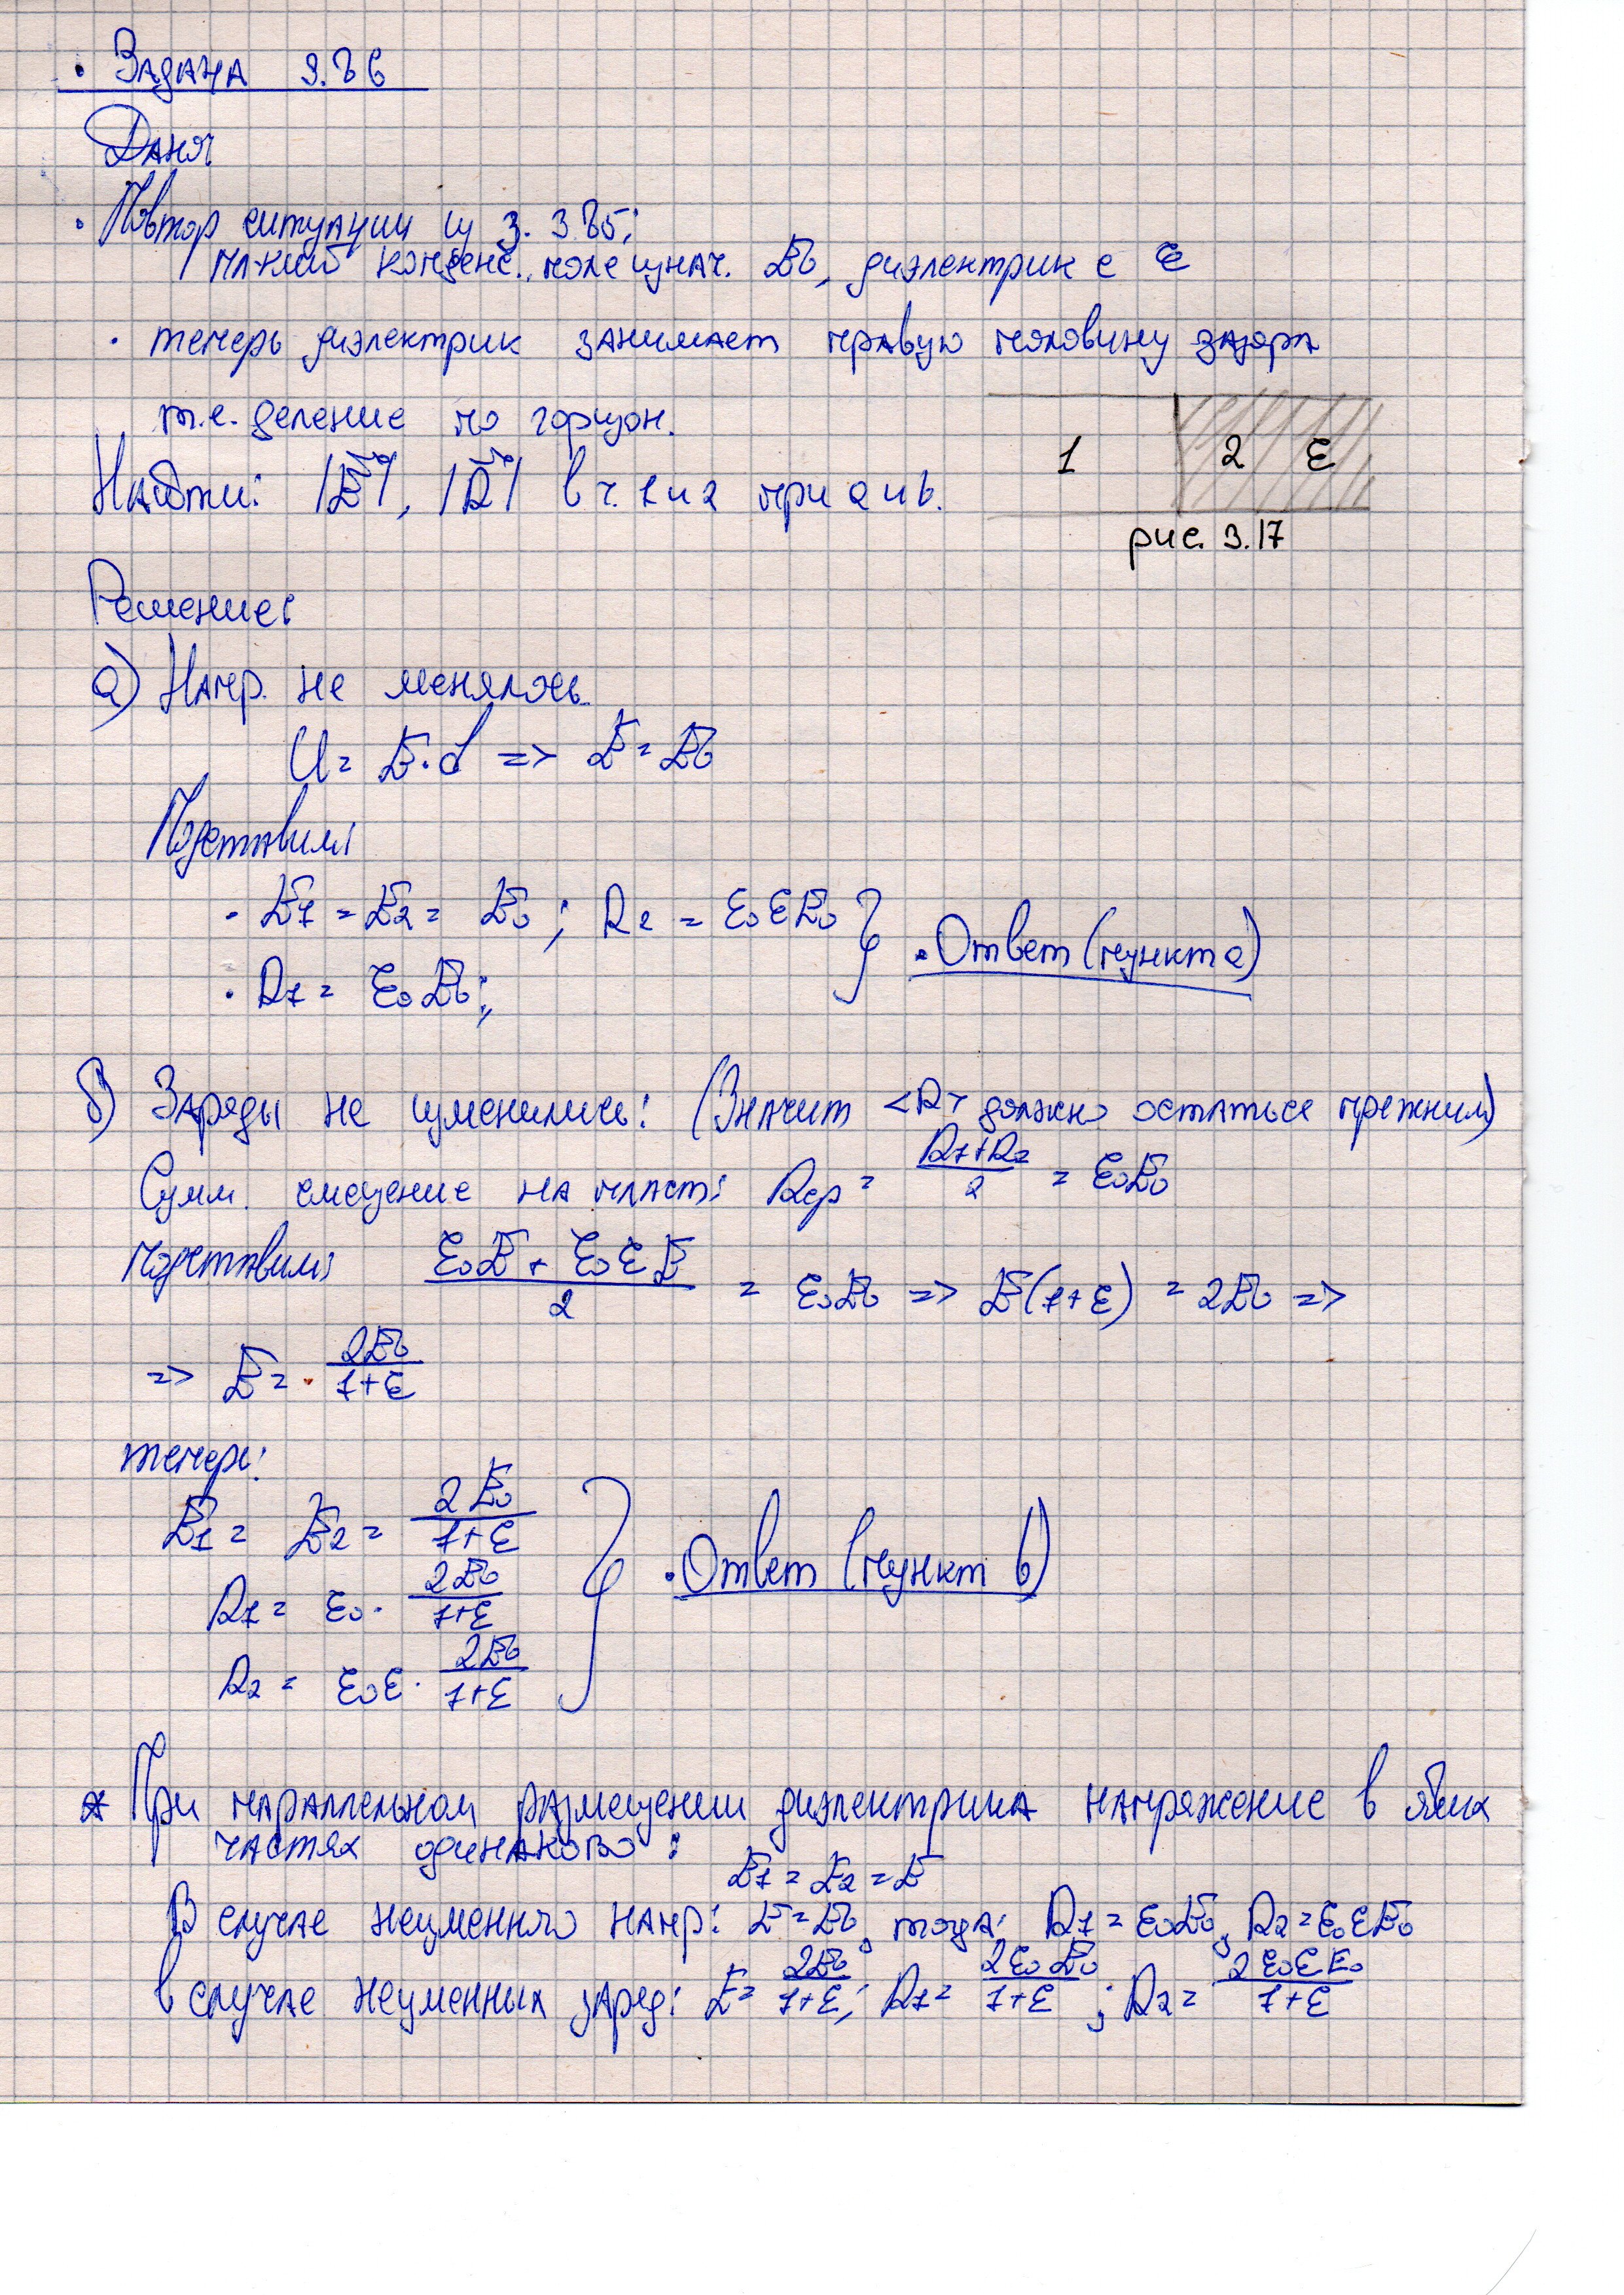 · Задача 3.86
Дано:
· Повтор ситуации из з. 3.85:
плоский конденс., поле изнач. E₀, диэлектрик с ε
· теперь диэлектрик занимает правую половину зазора
т.е. деление по горизон.
1 2 ε
рис. 3.17
Найти: |E⃗|, |D⃗| в т. 1 и 2 при a и b.
Решение:
a) Напр. не менялось.
U = E·d => E = E₀
Подставим:
· E₁ = E₂ = E₀; D₂ = ε₀εE₀
· D₁ = ε₀E₀;
· Ответ (пункт a)
б) Заряды не изменились: (Значит <D> должно остаться прежним)
Сумм. смещение на пласт: Dср = (D₁+D₂)/2 = ε₀E₀
подставим: (ε₀E + ε₀εE)/2 = ε₀E₀ => E(1+ε) = 2E₀ =>
=> E = 2E₀/(1+ε)
теперь:
E₁ = E₂ = 2E₀/(1+ε)
D₁ = ε₀ · 2E₀/(1+ε)
D₂ = ε₀ε · 2E₀/(1+ε)
· Ответ (пункт b)
* При параллельном размещении диэлектрика напряжение в обеих
частях одинаково:
E₁ = E₂ = E
В случае неизменного напр: E = E₀, тогда: D₁ = ε₀E₀, D₂ = ε₀εE₀
в случае неизменных заряд: E = 2E₀/(1+ε); D₁ = 2ε₀E₀/(1+ε); D₂ = 2ε₀εE₀/(1+ε)